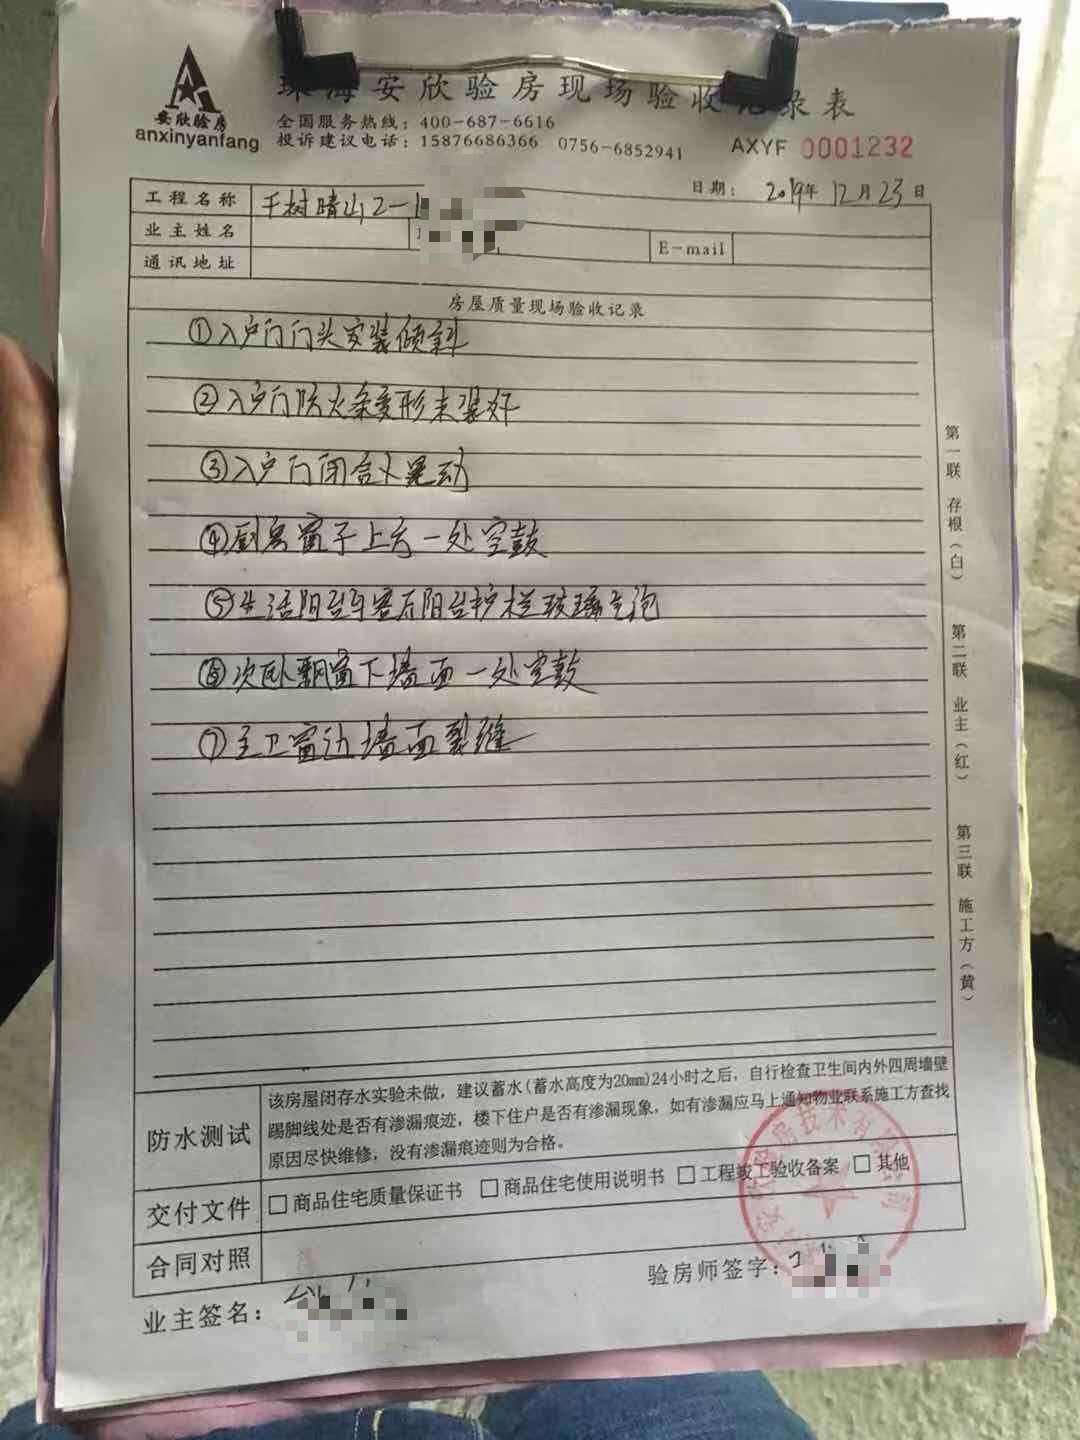 安欣验房
anxinyanfang
珠海安欣验房现场验收记录表
全国服务热线：400-687-6616
投诉建议电话：15876686366 0756-6852941
AXYF 0001232
日期： 2019年 12月 23日
工程名称 千树晴山2-1
业主姓名
E-mail
通讯地址
房屋质量现场验收记录
①入户门门头安装倾斜
②入户门防火条变形未装好
③入户门闭合火晃动
④厨房窗子上方一处空鼓
⑤生活阳台与客厅阳台护栏玻璃气泡
⑥次卧飘窗下墙面一处空鼓
⑦主卫窗边墙面裂缝
第一联 存根（白）
第二联 业主（红）
第三联 施工方（黄）
防水测试
该房屋闭存水实验未做，建议蓄水(蓄水高度为20mm)24小时之后，自行检查卫生间内外四周墙壁
踢脚线处是否有渗漏痕迹，楼下住户是否有渗漏现象，如有渗漏应马上通知物业联系施工方查找
原因尽快维修，没有渗漏痕迹则为合格。
交付文件 □商品住宅质量保证书 □商品住宅使用说明书 □工程或工验收备案 □其他
合同对照
业主签名：
验房师签字：